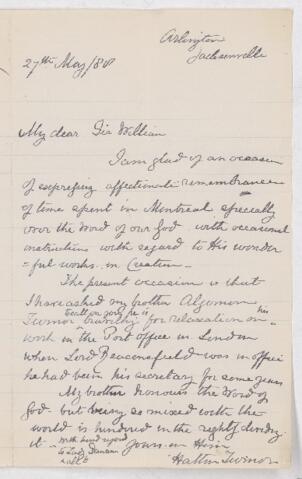 Arlington
Jacksonville
27th May/88
My dear Sir William
I am glad of an occasion
of expressing affectionate remembrance
of time spent in Montreal specially
over the Word of our God with occasional
instructions with regard to His wonder
=ful works in Creation.
The present occasion is that
I have asked my brother Algernon
Turnor to call on you he is his
travelling for relaxation
work in the Post office in London
when Lord Beaconsfield was in office
he had been his secretary for some years
My brother honours the Word of
God but being so mixed with the
world is hindred in the rightly dividing
it — With kind regard
to Lady Dawson
yours in Him
Hatton Turnor